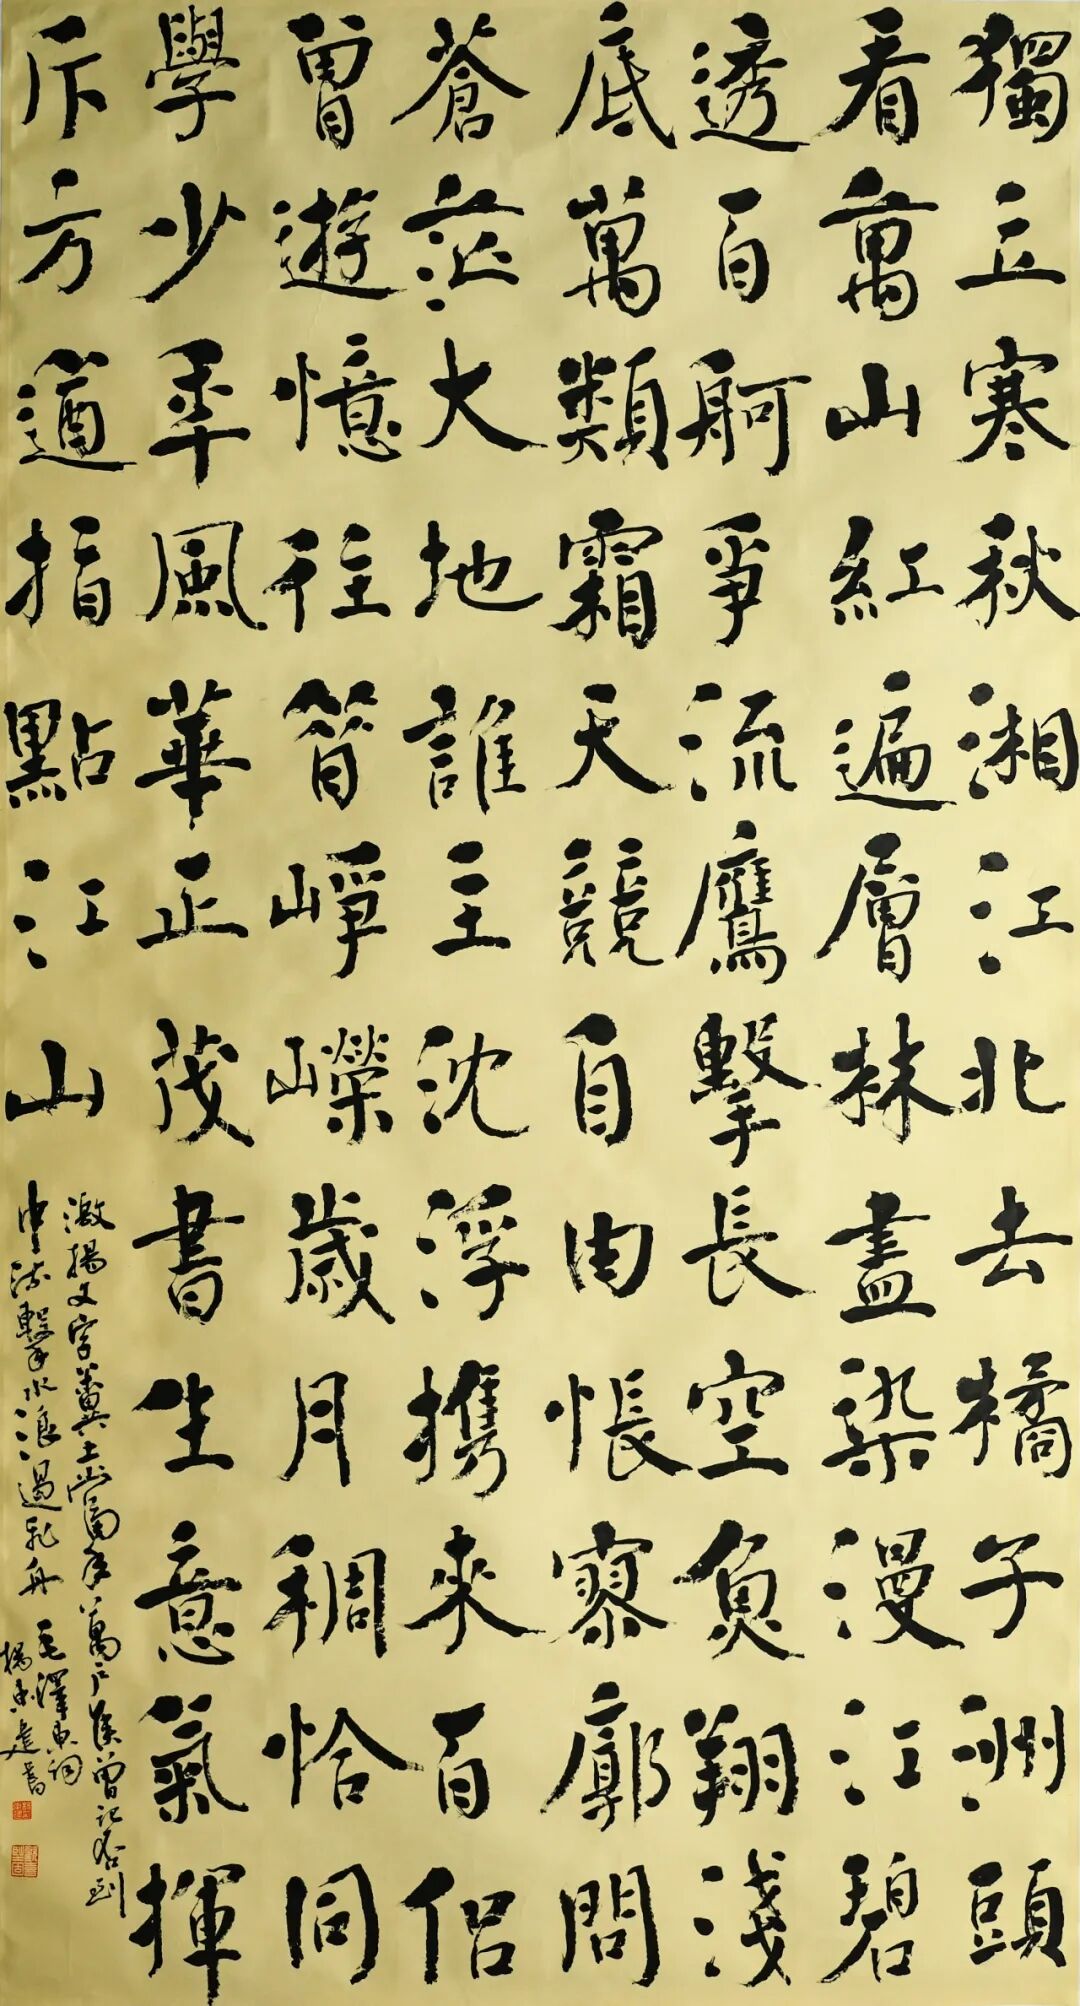 獨立寒秋湘江北去橘子洲頭
看萬山紅遍層林盡染漫江碧
透百舸爭流鷹擊長空魚翔淺
底萬類霜天競自由悵寥廓問
蒼茫大地誰主沈浮携來百侣
曾遊憶往昔崢嶸歲月稠恰同
學少年風華正茂書生意氣揮
斥方遒指點江山
激揚文字糞土當年萬户侯曾記否到
中流擊水浪遏飛舟 毛澤東詞
楊 建書